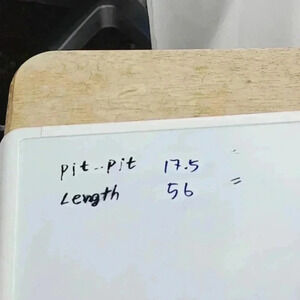 Pit..Pit 17.5
Length 56 =